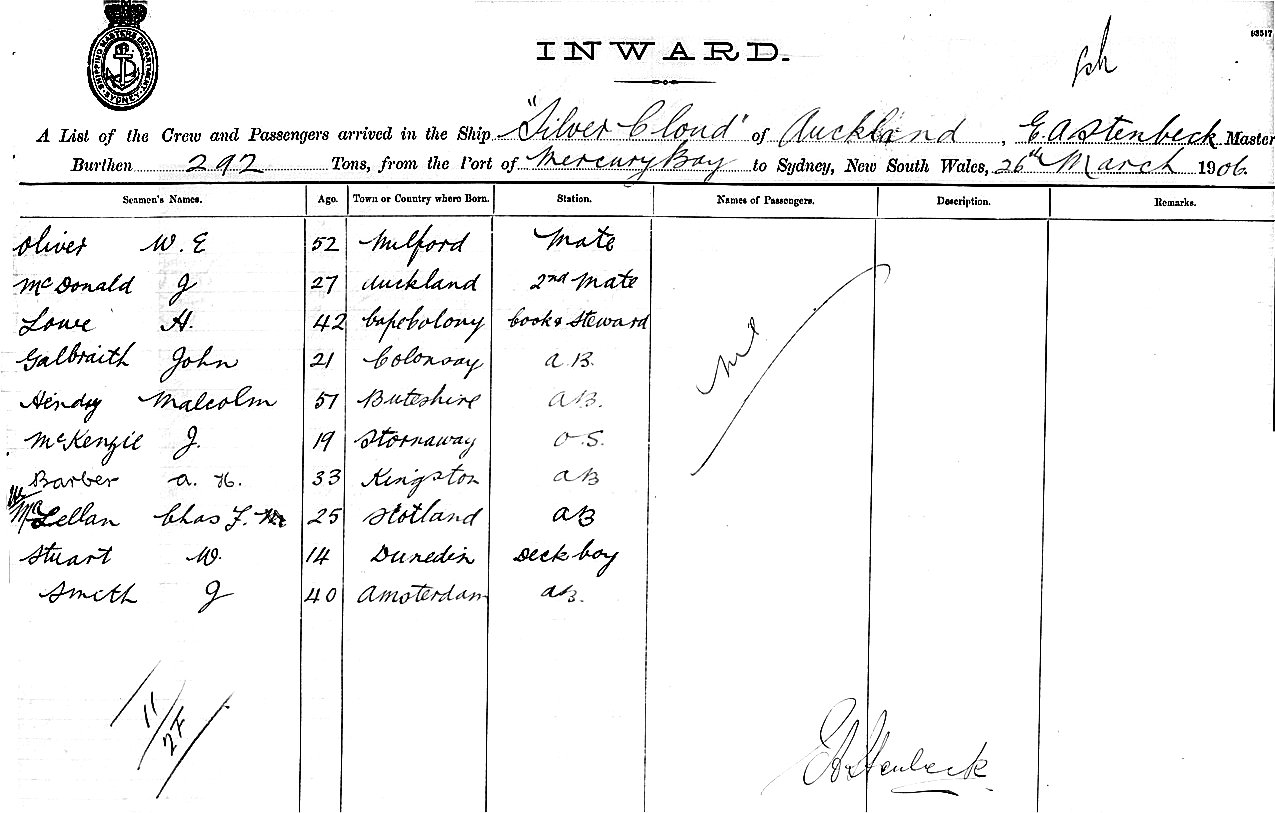 SHIPPING MASTER'S DEPARTMENT SYDNEY
93517
INWARD.
A List of the Crew and Passengers arrived in the Ship "Silver Cloud" of Auckland, E. A Stenbeck Master
Burthen 292 Tons, from the Port of Mercury Bay to Sydney, New South Wales, 26th March 1906.
Seamen's Names. Age. Town or Country where Born. Station. Names of Passengers. Description. Remarks.
Oliver W. E 52 Milford Mate
McDonald J 27 Auckland 2nd Mate
Lowe H. 42 Cape Colony Cook & Steward
Galbraith John 21 Colonsay A.B.
Hendry Malcolm 51 Buteshire A.B.
McKenzie J. 19 Stornaway O.S.
Barber A. H. 33 Kingston AB
McLellan Chas F. 25 Scotland AB
Stuart W. 14 Dunedin Deck boy
Smith J 40 Amsterdam AB.
Nil
11
E A Stenbeck